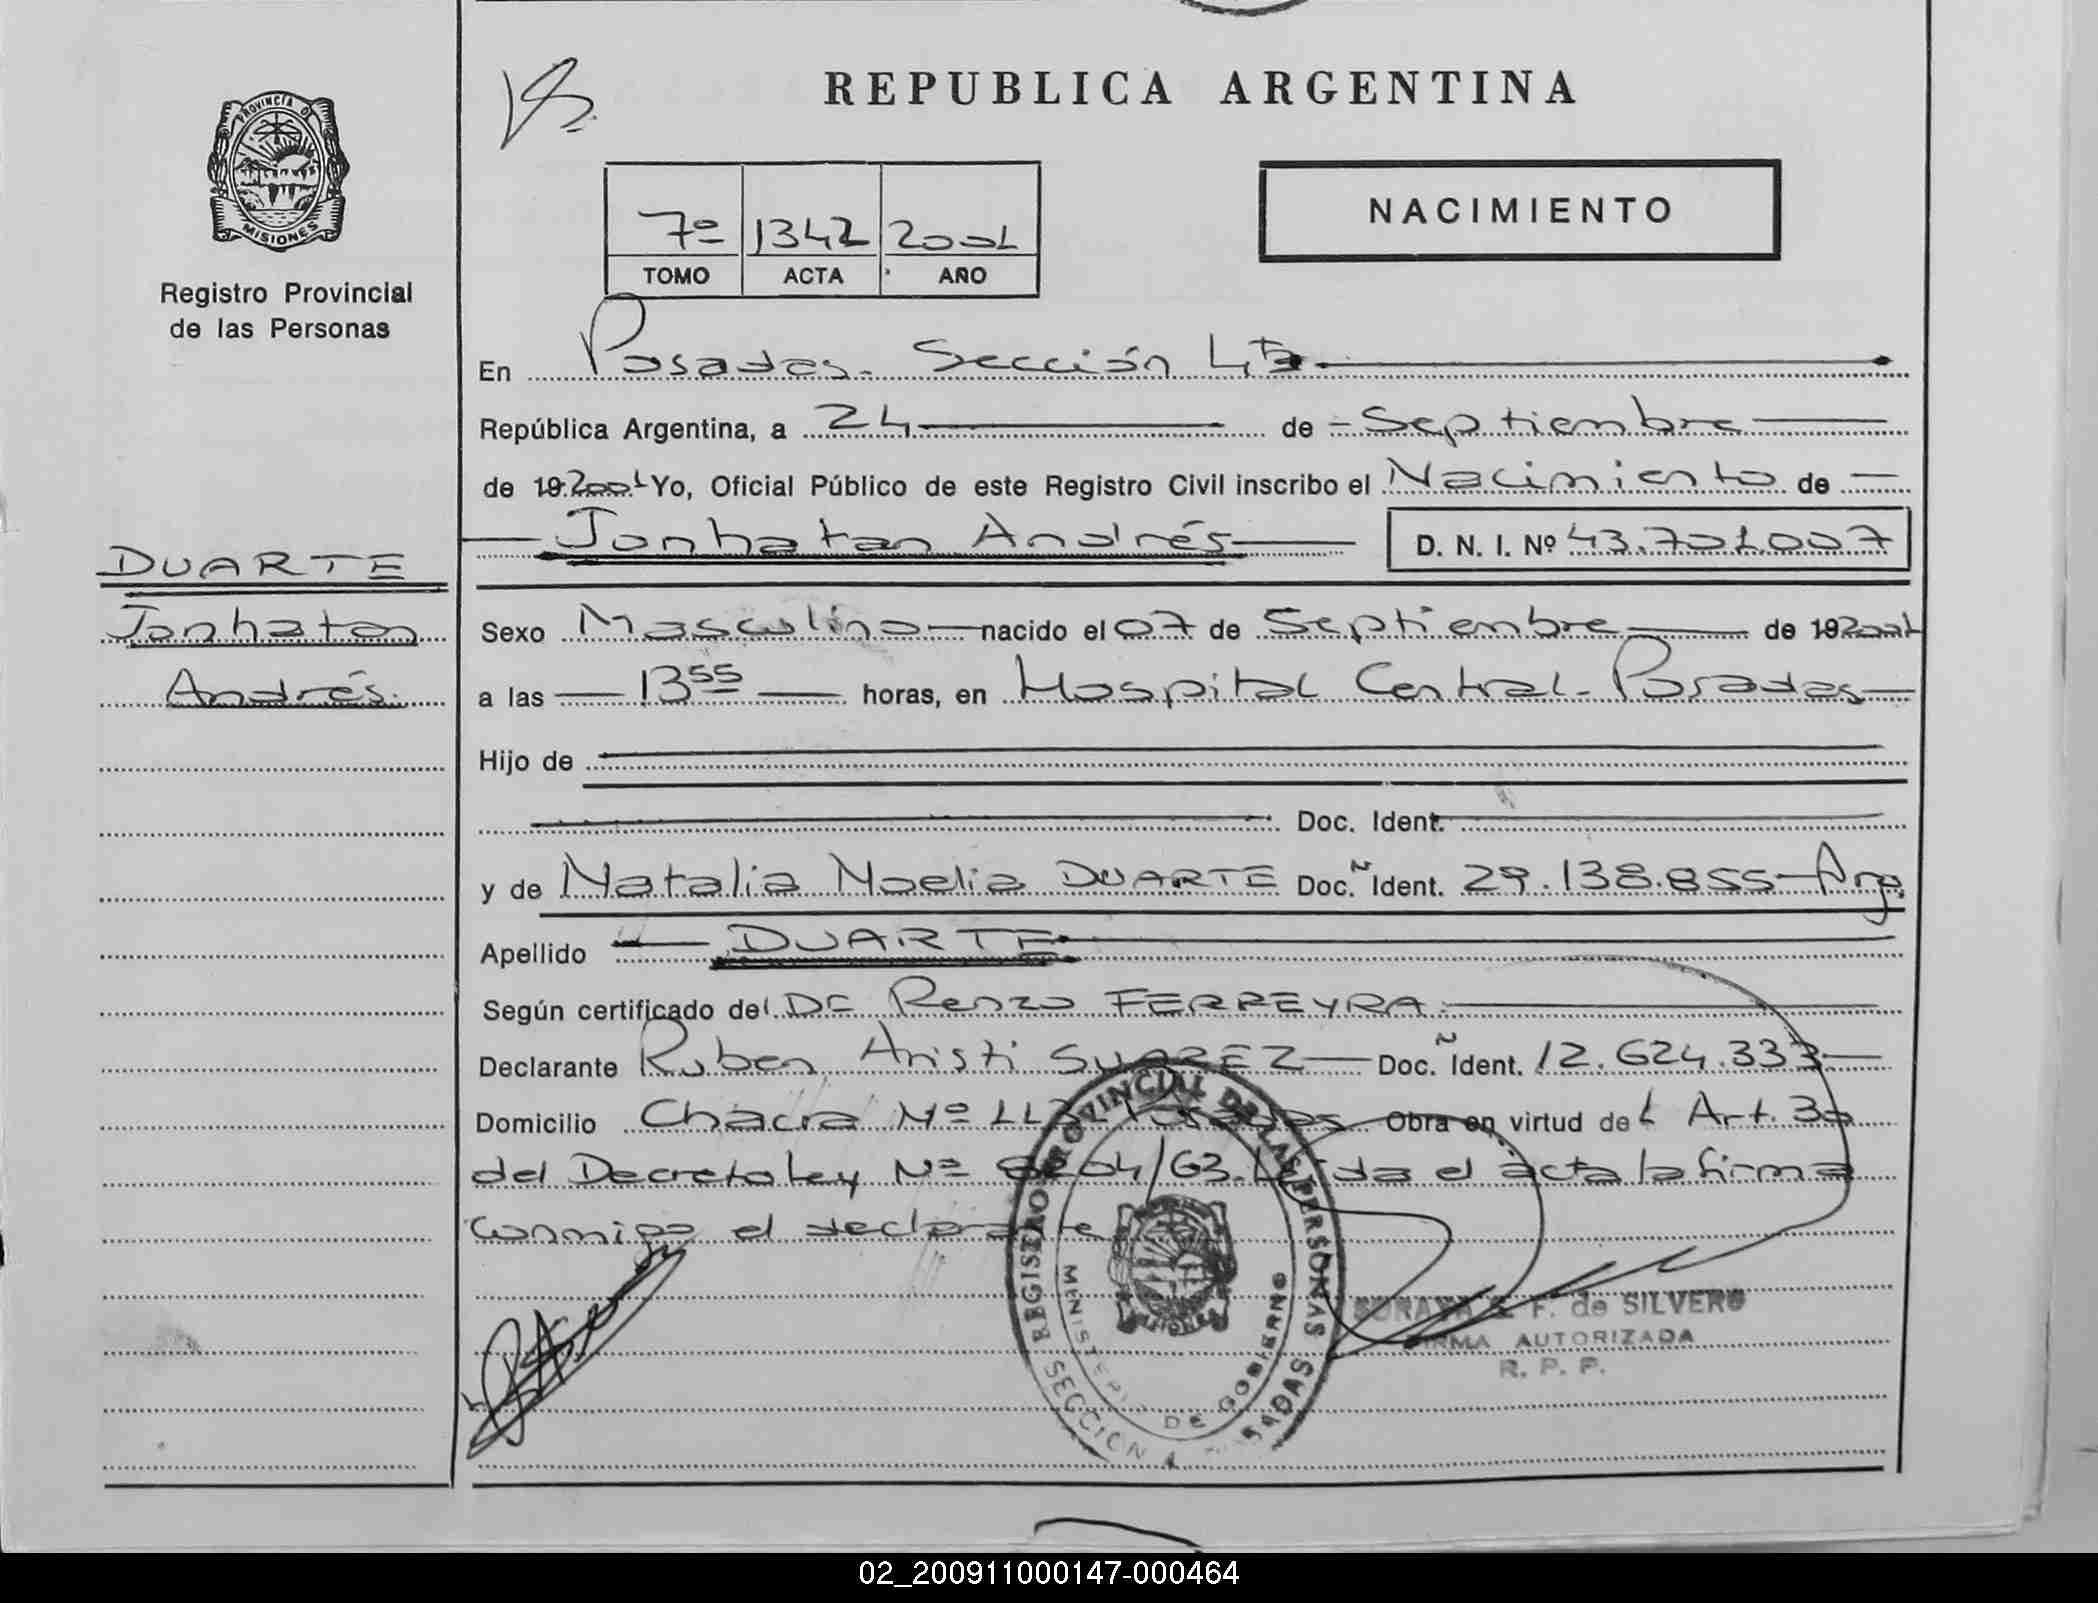 PROVINCIA DE
MISIONES
Registro Provincial
de las Personas
DUARTE
Jonhatan
Andrés.
REPUBLICA ARGENTINA
7º 1342 2001
TOMO ACTA AÑO
NACIMIENTO
En Posadas. Sección 4ta
República Argentina, a 24 de Septiembre
de 19 2001 Yo, Oficial Público de este Registro Civil inscribo el Nacimiento de
Jonhatan Andrés D. N. I. Nº 43.701.007
Sexo Masculino nacido el 07 de Septiembre de 19 2001
a las 13 55 horas, en Hospital Central - Posadas
Hijo de
Doc. Ident.
y de Natalia Noelia DUARTE Doc. Ident. 29.138.855 - Arg.
Apellido DUARTE
Según certificado del Dr Renzo FERREYRA.
Declarante Ruben Aristi SUAREZ Doc. Ident. 12.624.333
Domicilio Chacra Nº Posadas Obra en virtud del Art. 30
del Decreto Ley Nº 8204/63. Leída el acta la firma
conmigo el declarante
REGISTRO PROVINCIAL DE LAS PERSONAS
MINISTERIO DE GOBIERNO
SECCION 4 POSADAS
F. de SILVERO
FIRMA AUTORIZADA
R. P. P.
02_200911000147-000464